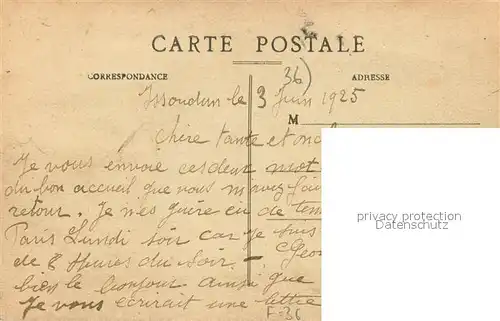 CARTE POSTALE
CORRESPONDANCE
ADRESSE
36)
Issoudun le 3 Juin 1925
M
Chère tante et onc
Je vous envoie ces deux mot
du bon accueil que vous m'avez fai
retour. Je n'es guère eu de tem
Paris Lundi soir car je suis
de 8 heures du soir. –
bien le bonjour ainsi que
Je vous écrirait une lettre
F-36
privacy protection
Datenschutz